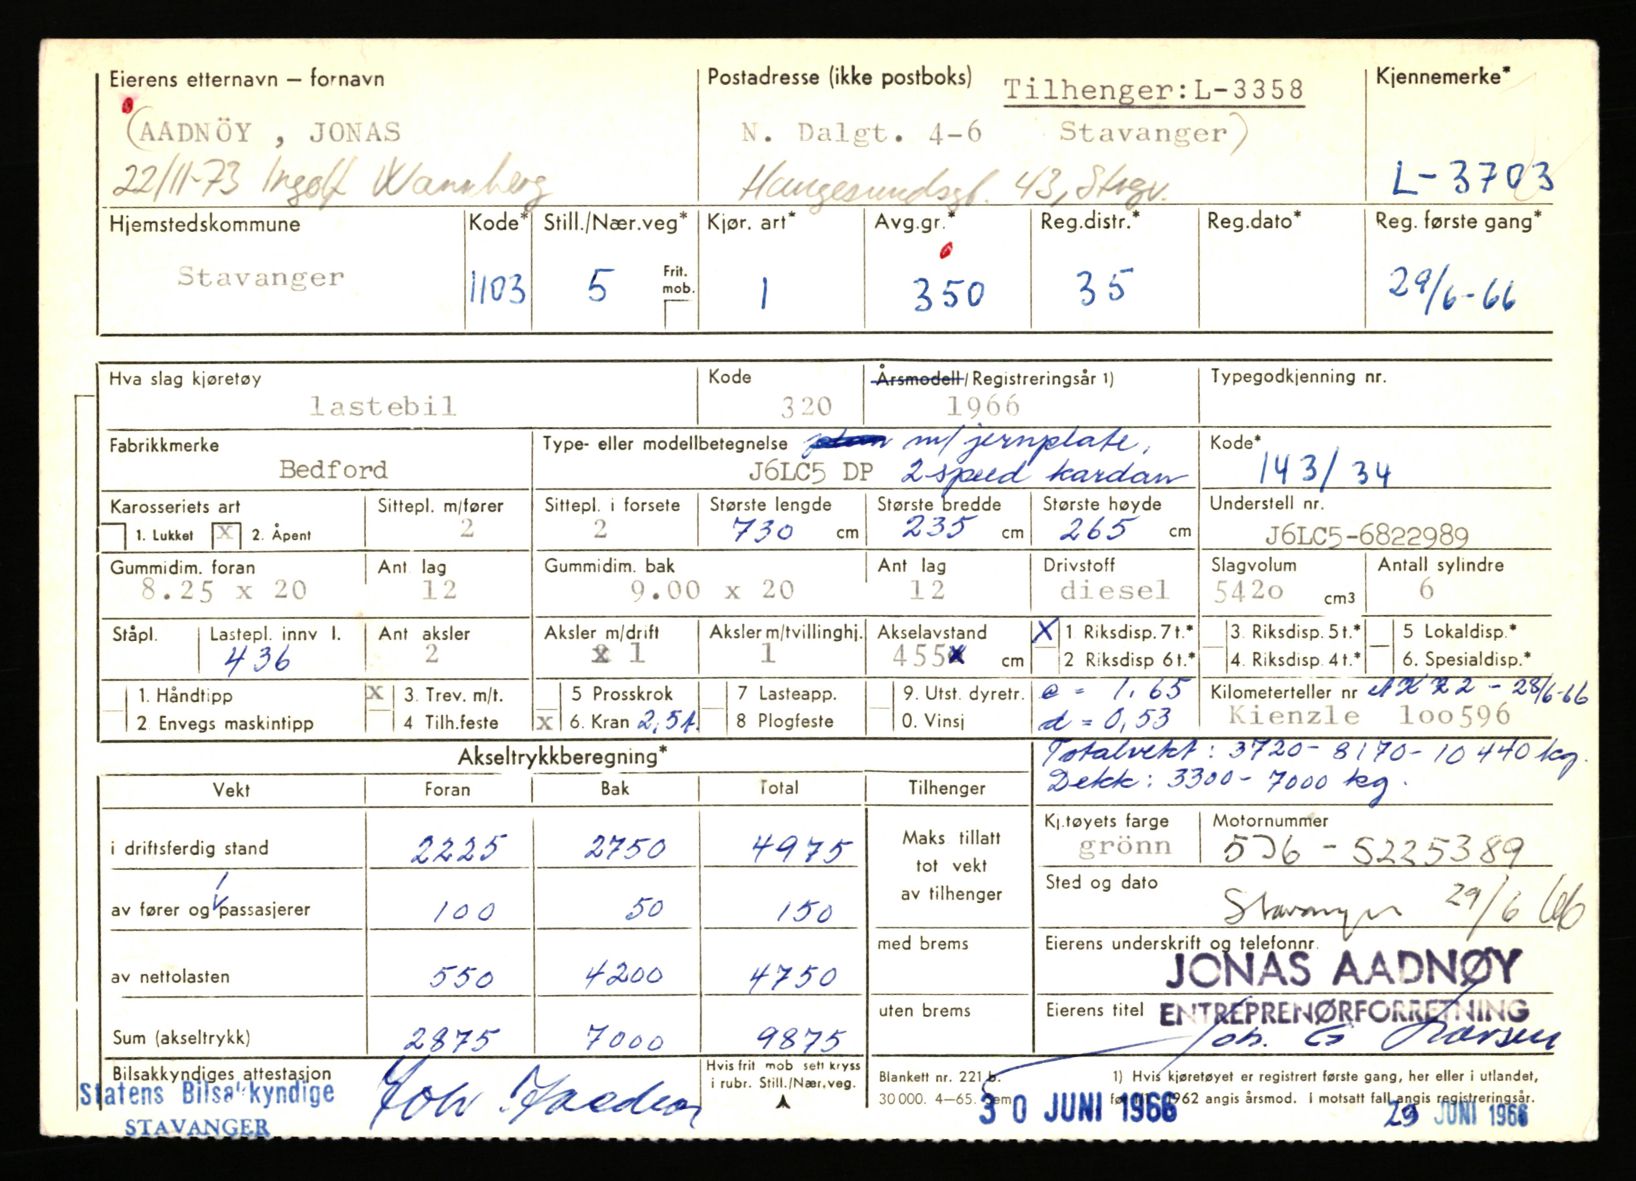 Eierens etternavn – fornavn
Postadresse (ikke postboks)
Tilhenger:L-3358
Kjennemerke*
(AADNÖY , JONAS
N. Dalgt. 4-6 Stavanger)
22/11-73 Ingolf Wannberg
Haugesundsgt. 43, Stvgr.
L-3703
Hjemstedskommune
Kode*
Still./Nær.veg*
Kjør. art*
Avg.gr.*
Reg.distr.*
Reg.dato*
Reg. første gang*
Stavanger
1103
5
Frit. mob.
1
350
35
29/6-66
Hva slag kjøretøy
Kode
Årsmodell/Registreringsår 1)
Typegodkjenning nr.
lastebil
320
1966
Fabrikkmerke
Type- eller modellbetegnelse
m/jernplate,
Kode*
Bedford
J6LC5 DP 2-speed kardan
143/34
Karosseriets art
Sittepl. m/fører
Sittepl. i forsete
Største lengde
Største bredde
Største høyde
Understell nr.
1. Lukket X 2. Åpent
2
2
730 cm
235 cm
265 cm
J6LC5-6822989
Gummidim. foran
Ant. lag
Gummidim. bak
Ant. lag
Drivstoff
Slagvolum
Antall sylindre
8.25 x 20
12
9.00 x 20
12
diesel
5420 cm3
6
Ståpl.
Lastepl. innv l.
Ant aksler
Aksler m/drift
Aksler m/tvillinghj.
Akselavstand
X 1 Riksdisp. 7 t.*
3. Riksdisp. 5 t.*
5 Lokaldisp.*
436
2
1
1
455 cm
2 Riksdisp 6 t.*
4. Riksdisp. 4 t.*
6. Spesialdisp.*
1. Håndtipp
X 3. Trev. m/t.
5 Prosskrok
7 Lasteapp.
9. Utst. dyretr.
c = 1,65
Kilometerteller nr
28/6-66
2. Envegs maskintipp
4 Tilh.feste
X 6. Kran 2,5t.
8 Plogfeste
0. Vinsj
d = 0,53
Kienzle 100596
Akseltrykkberegning*
Totalvekt: 3720-8170-10440 kg.
Dekk: 3300-7000 kg.
Vekt
Foran
Bak
Total
Tilhenger
Kj.tøyets farge
Motornummer
i driftsferdig stand
2225
2750
4975
Maks tillatt
tot vekt
av tilhenger
grönn
5J6-S225389
Sted og dato
av fører og 1 passasjerer
100
50
150
Stavanger 29/6 66
med brems
Eierens underskrift og telefonnr.
JONAS AADNØY
av nettolasten
550
4200
4750
uten brems
Eierens titel
ENTREPRENØRFORRETNING
Sum (akseltrykk)
2875
7000
9875
Joh. G Larsen
Bilsakkyndiges attestasjon
Hvis frit mob sett kryss
i rubr. Still./Nær.veg.
Blankett nr. 221 b.
30 000. 4—65.
1) Hvis kjøretøyet er registrert første gang, her eller i utlandet,
før 1962 angis årsmod. I motsatt fall angis registreringsår.
Statens Bilsakkyndige
STAVANGER
30 JUNI 1966
29 JUNI 1966